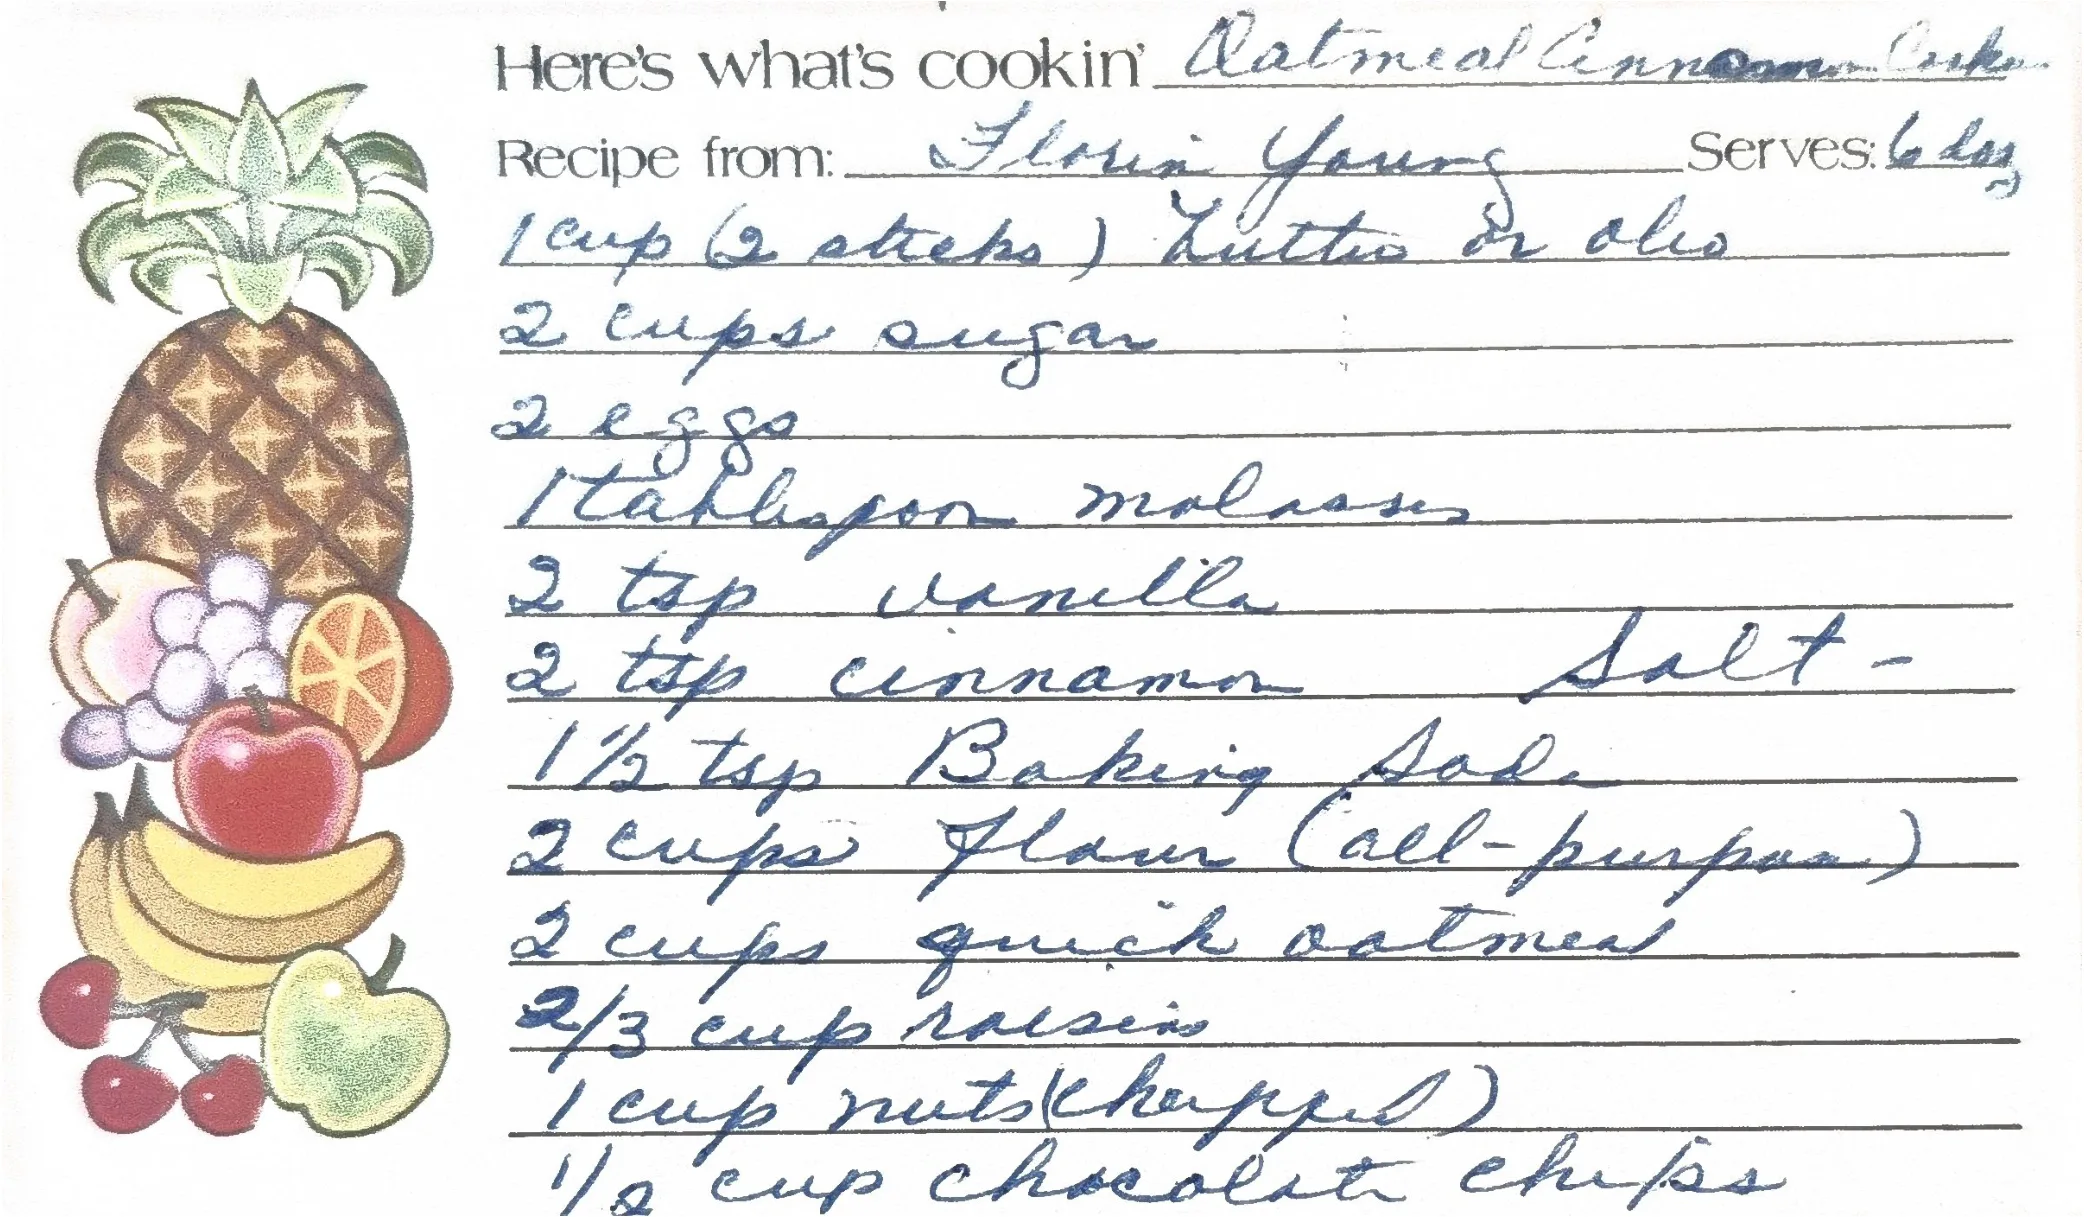 Here's what's cookin' Oatmeal Cinnamon
Recipe from: Florin Young Serves: 6 doz
1 cup (2 sticks) butter or oleo
2 cups sugar
2 eggs
1 tablespoon molasses
2 tsp vanilla
2 tsp cinnamon Salt -
1 1/2 tsp Baking Soda
2 cups flour (all-purpose)
2 cups quick oatmeal
2/3 cup raisins
1 cup nuts (chopped)
1/2 cup chocolate chips